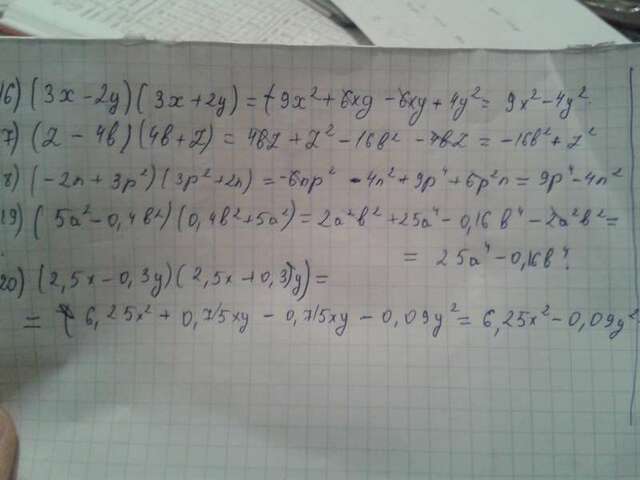 16) (3x - 2y)(3x + 2y) = 9x² + 6xy - 6xy + 4y² = 9x² - 4y²
7) (Z - 4b)(4b + Z) = 4bZ + Z² - 16b² - 4bZ = -16b² + Z²
8) (-2n + 3p²)(3p² + 2n) = -6np² - 4n² + 9p⁴ + 6p²n = 9p⁴ - 4n²
19) (5a² - 0,4b²)(0,4b² + 5a²) = 2a²b² + 25a⁴ - 0,16b⁴ - 2a²b² =
= 25a⁴ - 0,16b⁴.
20) (2,5x - 0,3y)(2,5x + 0,3y) =
= 6,25x² + 0,75xy - 0,75xy - 0,09y² = 6,25x² - 0,09y²